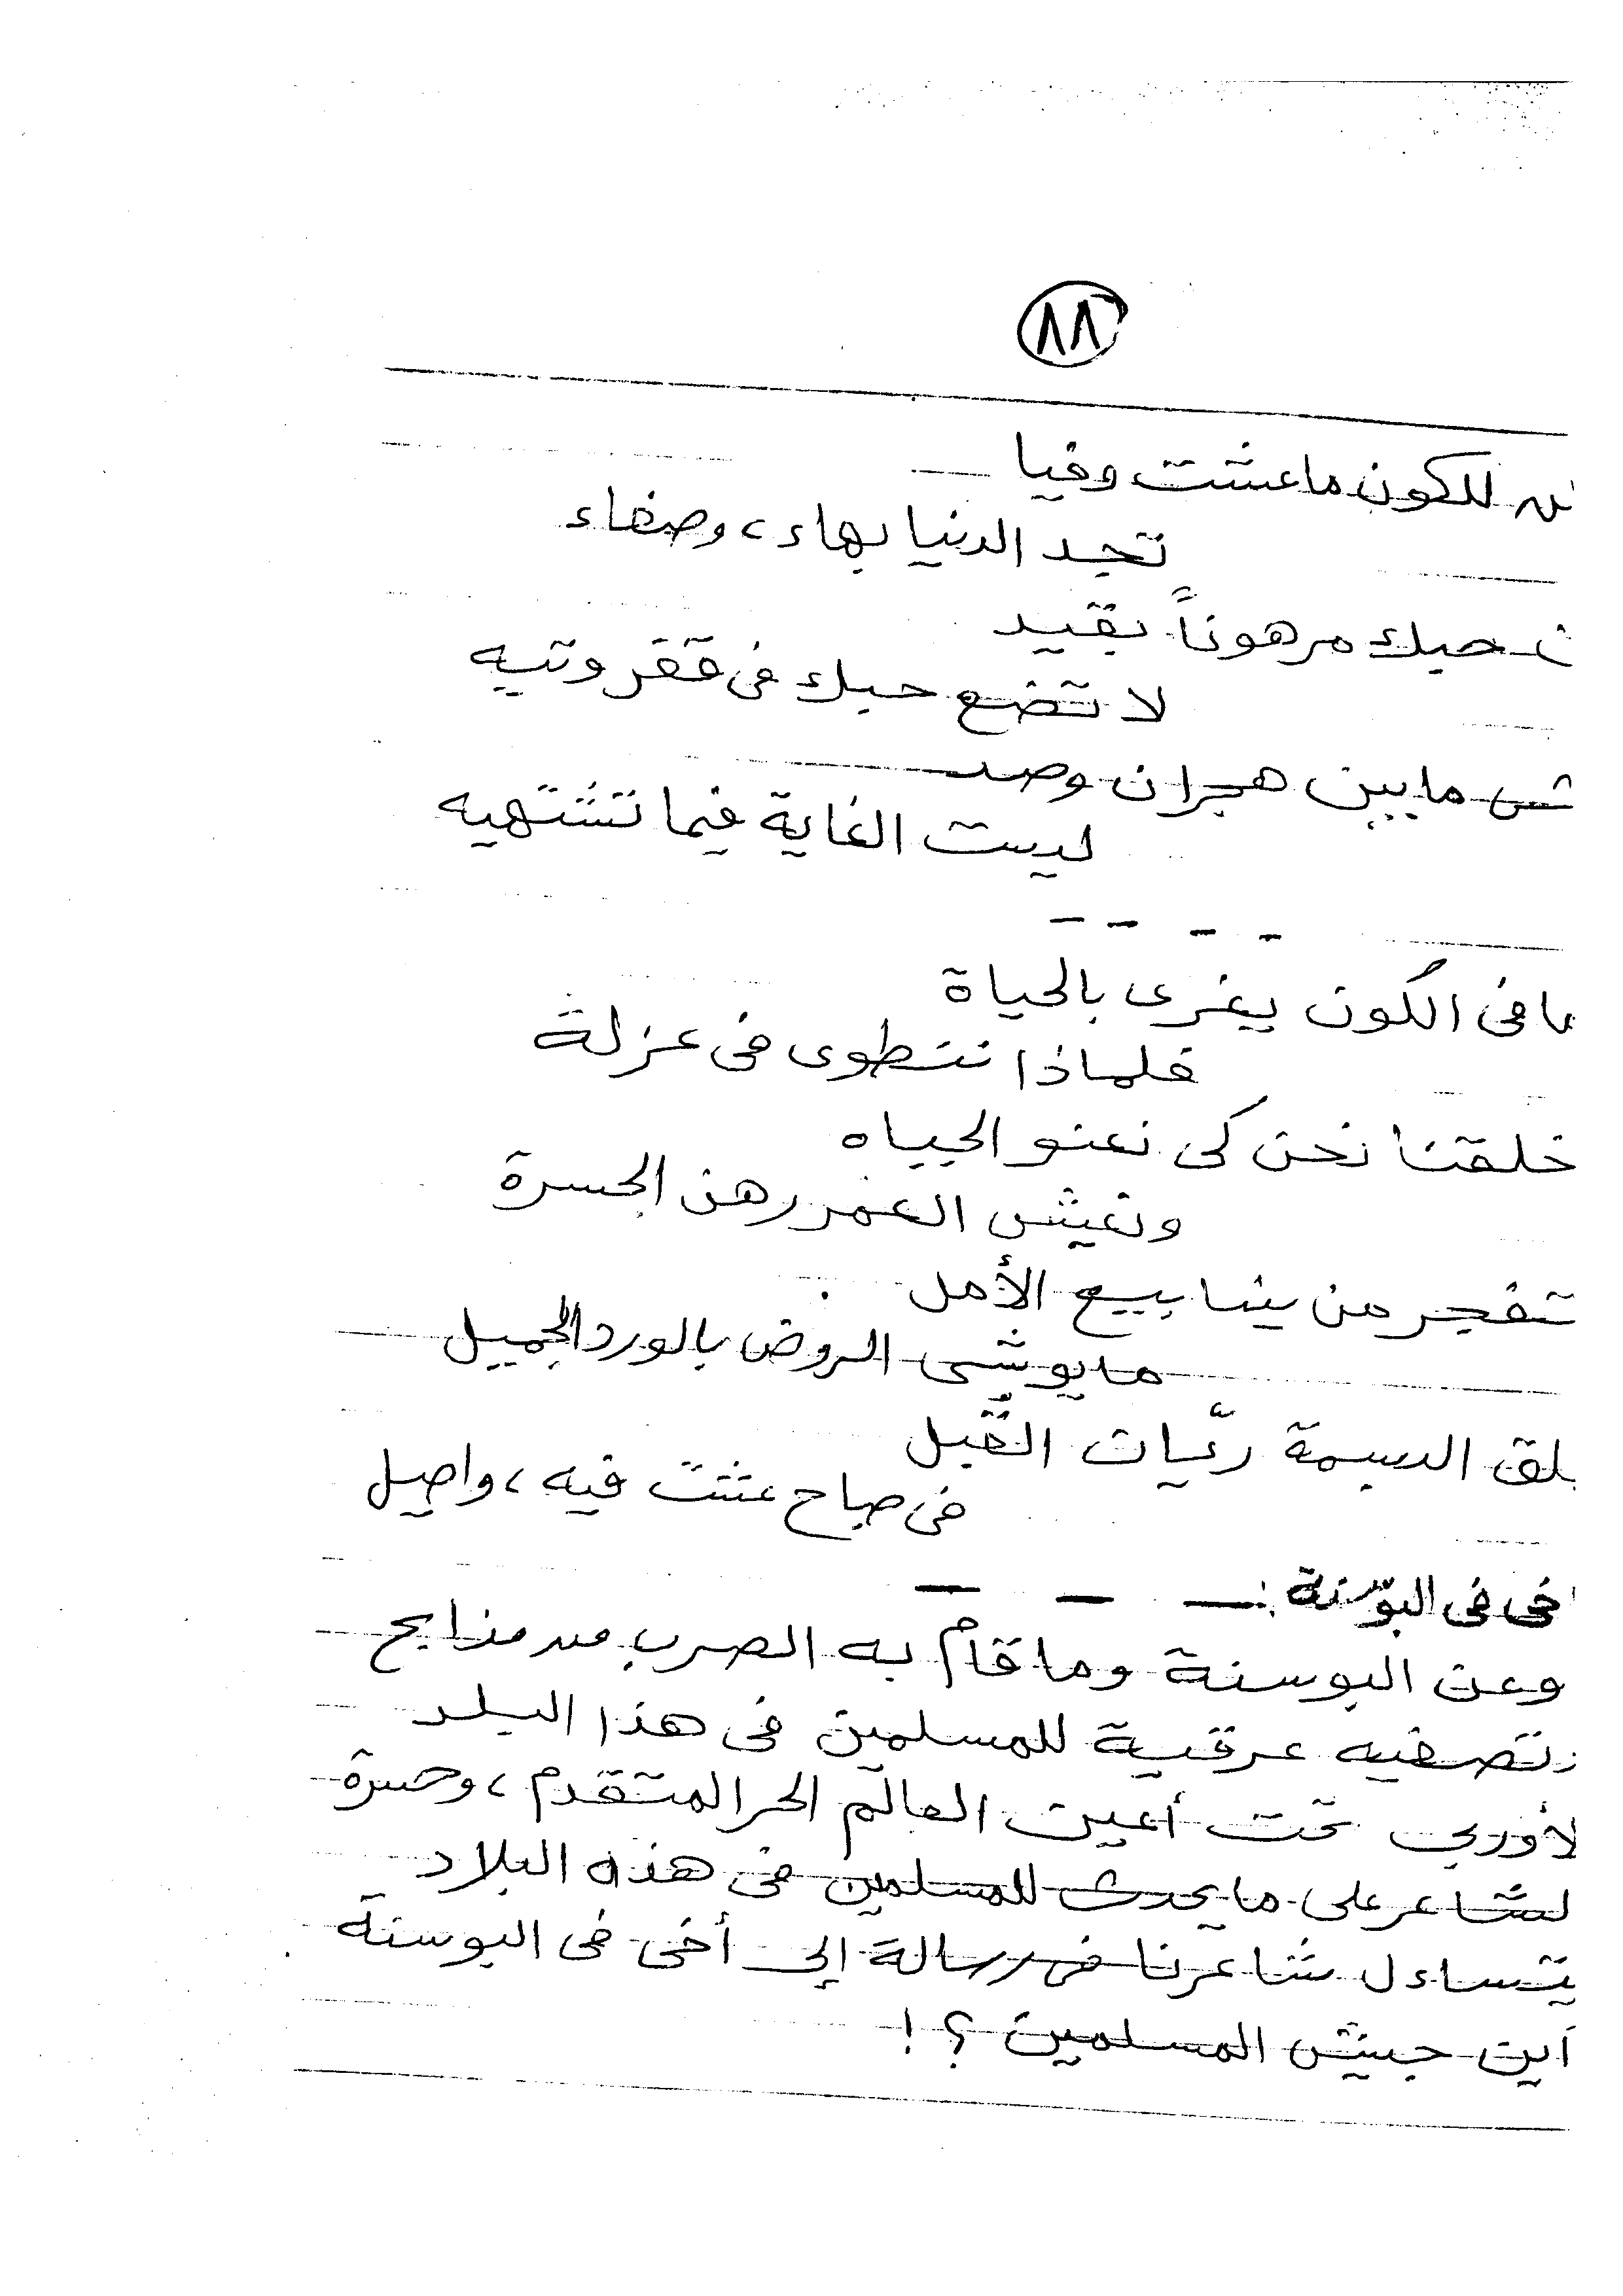 ٨٨
للكون ما عشت وفيا
تجد الدنيا بهاء، وصفاء
حبك مرهوناً بقيد
لا تضع حبك فى قفر وتيه
ما بين هجران وصد
ليست الغاية فيما تشتهيه
فى الكون يغرى بالحياة
فلماذا ننطوى فى عزلة
خلقنا نحن كى نعنو الجباه
ونعيش العمر رهن الحسرة
تتفجر من ينابيع الأمل
ما يوشى الروض بالورد الجميل
البسمة ريَّات القُبل
فى صباح عشت فيه، واصيل
فى البوسنة :
وعن البوسنة وما قام به الصرب من مذابح
تصفيه عرقية للمسلمين فى هذا البلد
لأوربى تحت أعين العالم الحر المتقدم، وحسرة
لشاعر على ما يحدث للمسلمين فى هذه البلاد
يتساءل شاعرنا فى رسالة إلى أخى فى البوسنة
أين جيش المسلمين ؟!